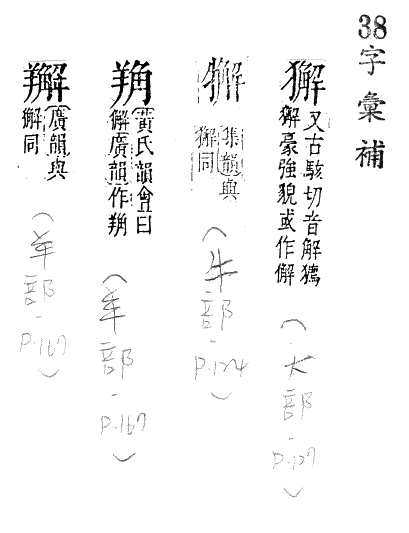 38字彙補
獬
又古駭切音解獨
獬豪強貌或作
(犬部-p.127)
集韻與
獬同
(牛部-p.124)
黃氏韻會曰
廣韻作
(羊部-p.167)
廣韻與
獬同
(羊部-p.167)